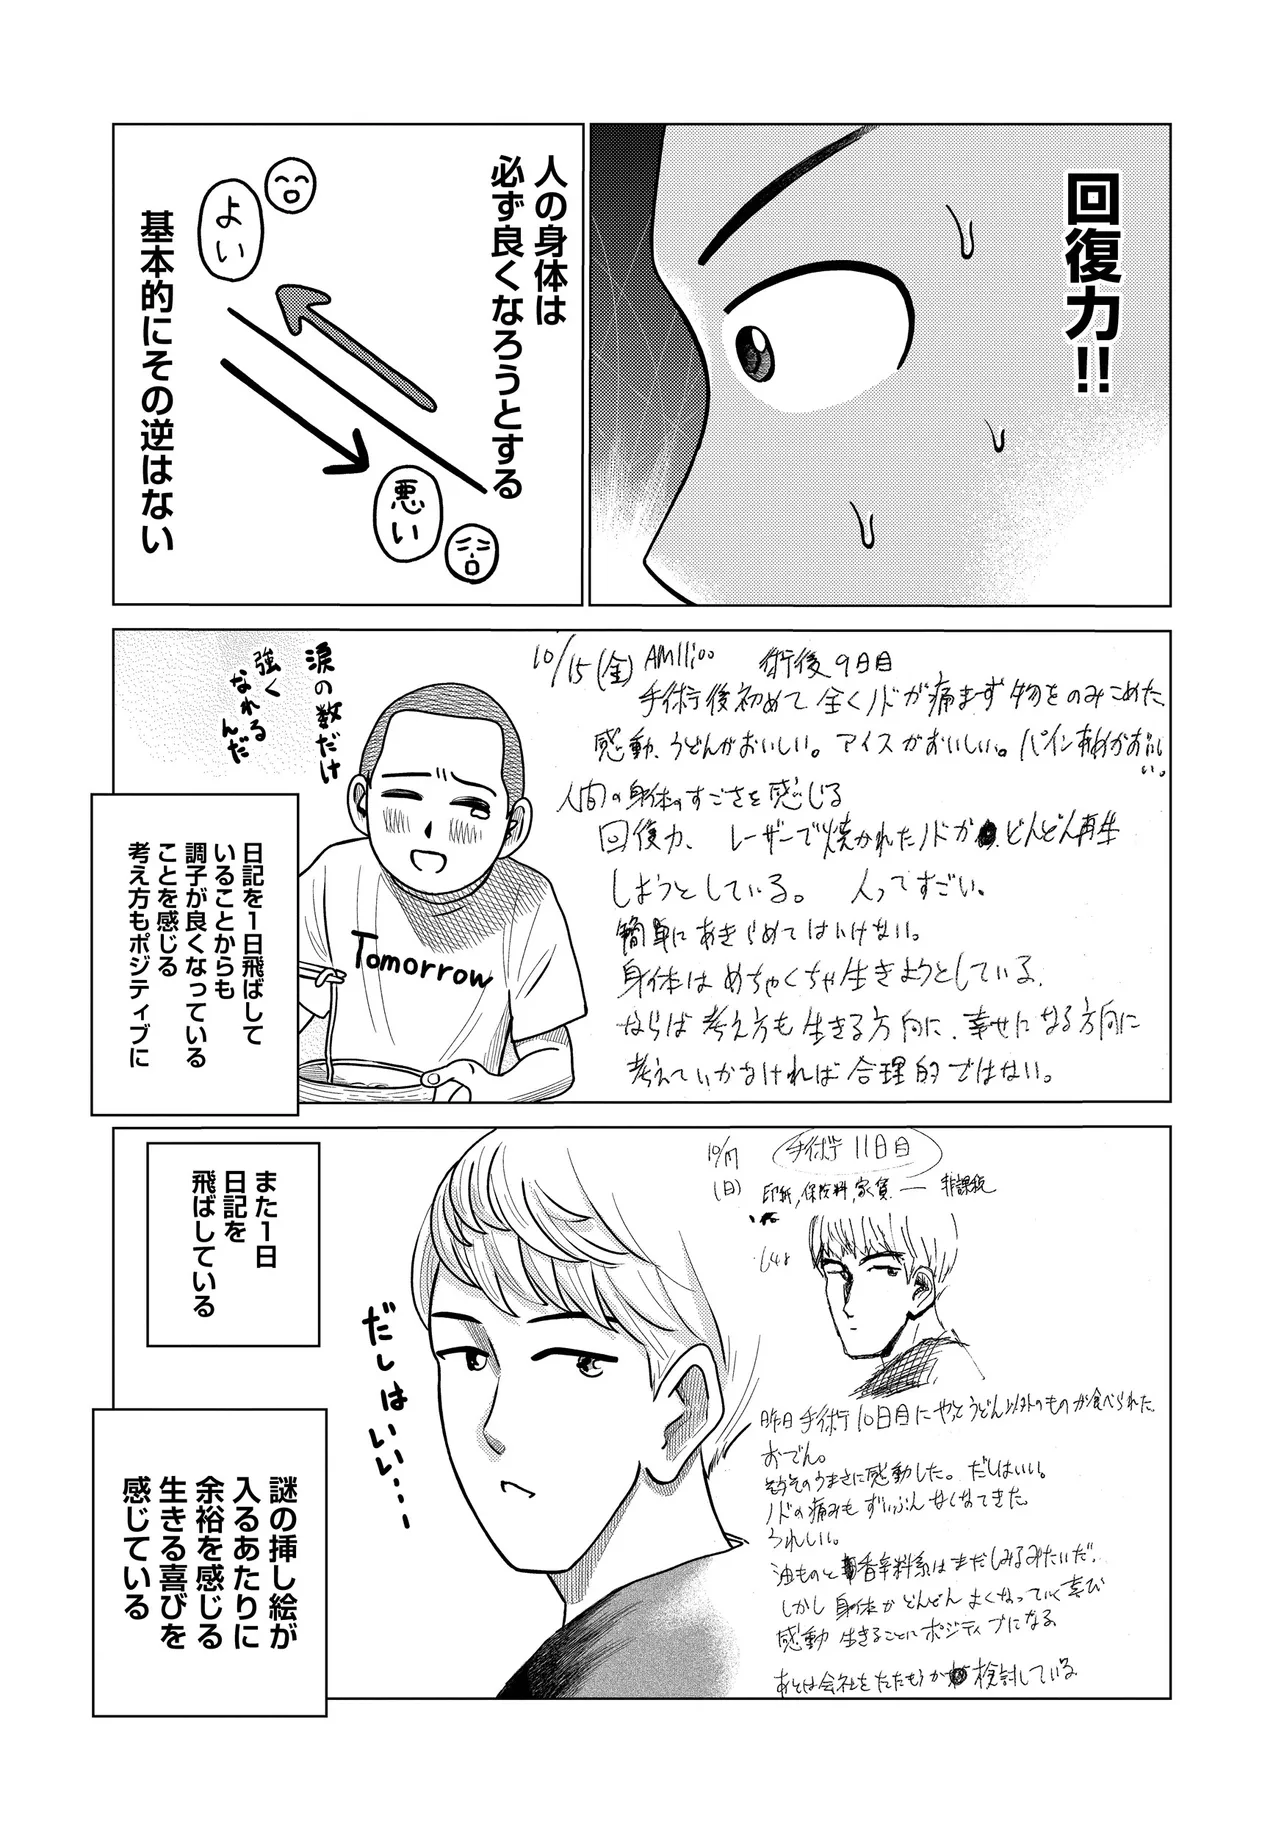 回復力!!
人の身体は
必ず良くなろうとする
よい
悪い
基本的にその逆はない
10/15(金) AM11:00 術後9日目
手術後初めて全くノドが痛まず物をのみこめた
感動、うどんがおいしい。アイスがおいしい。パイン
おいしい。
人間の身体のすごさを感じる
回復力、レーザーで焼かれたノドが どんどん再生
しようとしている。 人ってすごい。
簡単にあきらめてはいけない。
身体はめちゃくちゃ生きようとしている。
ならば考え方も生きる方向に、幸せになる方向に
考えていかなければ合理的ではない。
涙の数だけ
強く
なれる
んだ
Tomorrow
日記を1日飛ばして
いることからも
調子が良くなっている
ことを感じる
考え方もポジティブに
10/17
(日)
手術 11日目
印紙,保険料,家賃 ― 非課税
昨日手術10日目にやっとうどん以外のものが食べられた。
おでん。
そのうまさに感動した。だしはいい。
ノドの痛みもずいぶんなくなってきた。
うれしい。
油ものと香辛料系はまだしみるみたいだ。
しかし身体がどんどんよくなっていく喜び
感動 生きることにポジティブになる
あとは会社をたたもうか 検討している
だしはいい・・・・
また1日
日記を
飛ばしている
謎の挿し絵が
入るあたりに
余裕を感じる
生きる喜びを
感じている